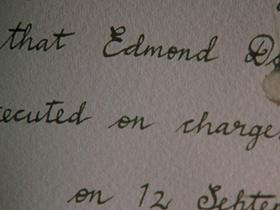 that Edmond
ecuted on charge
on 12 Septe